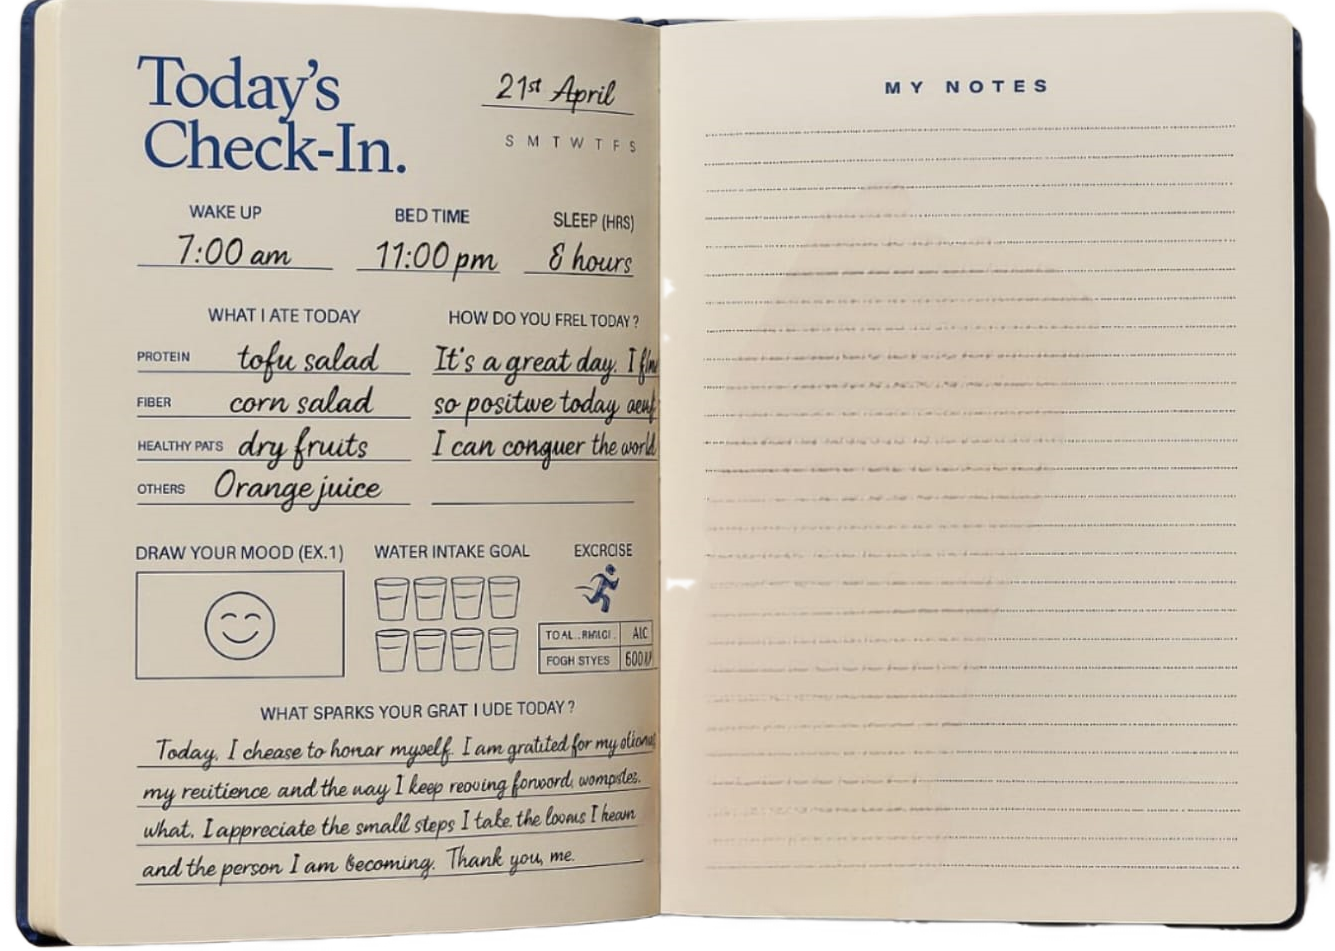 Today's
Check-In.
21st April
S M T W T F S
WAKE UP
7:00 am
BED TIME
11:00 pm
SLEEP (HRS)
8 hours
WHAT I ATE TODAY
PROTEIN tofu salad
FIBER corn salad
HEALTHY PATS dry fruits
OTHERS Orange juice
HOW DO YOU FREL TODAY?
It's a great day. I
so positwe today
I can conguer the world
DRAW YOUR MOOD (EX.1)
WATER INTAKE GOAL
EXCRCISE
TOAL
AIC
FOGH STYES
600
WHAT SPARKS YOUR GRAT I UDE TODAY?
Today, I chease to honar myself. I am gratited for my
my recitience and the way I keep reoving forword,
what. I appreciate the small steps I take. the looms I hearn
and the person I am becoming. Thank you, me.
MY NOTES